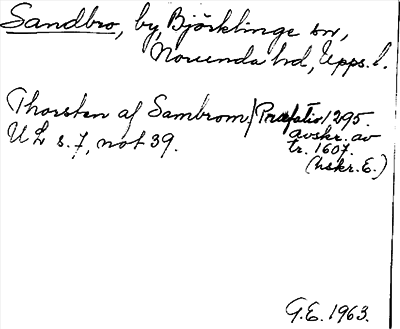 Sandbro, by, Björklinge sn,
Norunda hd, Upps. l.
Thorsten af Sambrom, Præfatio 1295.
UL s. 7, not 39.
avskr. av
tr. 1607.
(hskr. E.)
G.E. 1963.